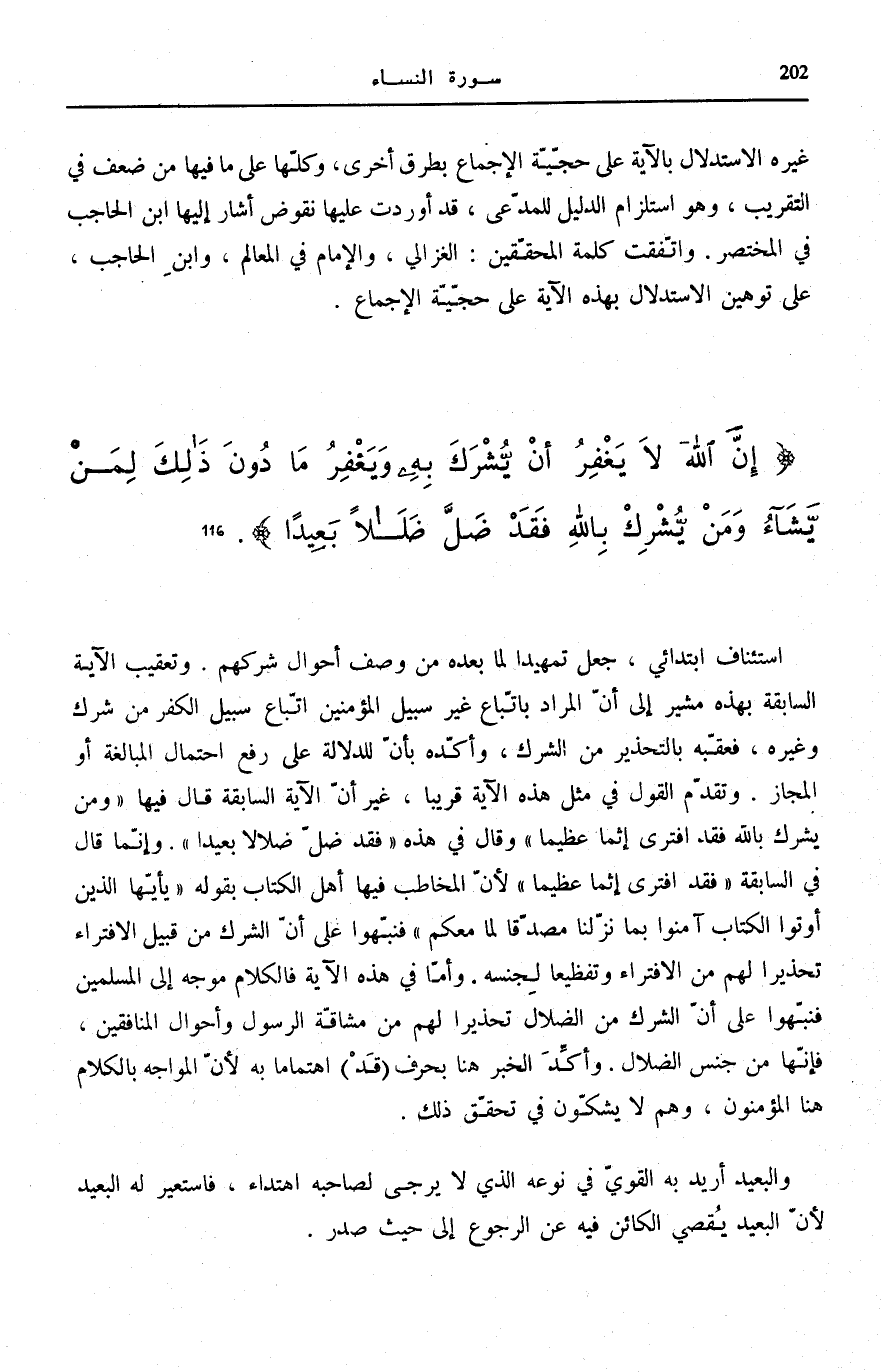 202
سـورة النسـاء
غيره الاستدلال بالآية على حجّيّة الإجماع بطرق أخرى، وكلّها على ما فيها من ضعف في
التقريب ، وهو استلزام الدليل للمدّعى ، قد أوردت عليها نقوض أشار إليها ابن الحاجب
في المختصر . واتّفقت كلمة المحقّقين : الغزالي ، والإمام في المعالم ، وابنِ الحاجب ،
على توهين الاستدلال بهذه الآية على حجّيّة الإجماع .
﴿ إِنَّ ٱللَّهَ لَا يَغْفِرُ أَنْ يُّشْرَكَ بِهِۦ وَيَغْفِرُ مَا دُونَ ذَٰلِكَ لِمَـنْ
يَّشَآءُ وَمَنْ يُّشْرِكْ بِاللَّهِ فَقَدْ ضَلَّ ضَلَـٰلًا بَعِيدًا ﴾ . 116
استئناف ابتدائي ، جعل تمهيدا لما بعده من وصف أحوال شركهم . وتعقيب الآية
السابقة بهذه مشير إلى أنّ المراد باتّباع غير سبيل المؤمنين اتّباع سبيل الكفر من شرك
وغيره ، فعقّبه بالتحذير من الشرك ، وأكّده بأنّ للدلالة على رفع احتمال المبالغة أو
المجاز . وتقدّم القول في مثل هذه الآية قريبا ، غير أنّ الآية السابقة قال فيها « ومن
يشرك بالله فقد افترى إثما عظيما » وقال في هذه « فقد ضلّ ضلالا بعيدا » . وإنّما قال
في السابقة « فقد افترى إثما عظيما » لأنّ المخاطب فيها أهل الكتاب بقوله « يأيّها الذين
أوتوا الكتاب آمنوا بما نزّلنا مصدّقا لما معكم » فنبّهوا على أنّ الشرك من قبيل الافتراء
تحذيرا لهم من الافتراء وتفظيعا لجنسه . وأمّا في هذه الآية فالكلام موجه إلى المسلمين
فنبّهوا على أنّ الشرك من الضلال تحذيرا لهم من مشاقّة الرسول وأحوال المنافقين ،
فإنّها من جنس الضلال . وأكِّدَ الخبر هنا بحرف (قَدْ) اهتماما به لأنّ المواجه بالكلام
هنا المؤمنون ، وهم لا يشكّون في تحقّق ذلك .
والبعيد أريد به القويّ في نوعه الذي لا يرجى لصاحبه اهتداء ، فاستعير له البعيد
لأنّ البعيد يُقصي الكائن فيه عن الرجوع إلى حيث صدر .